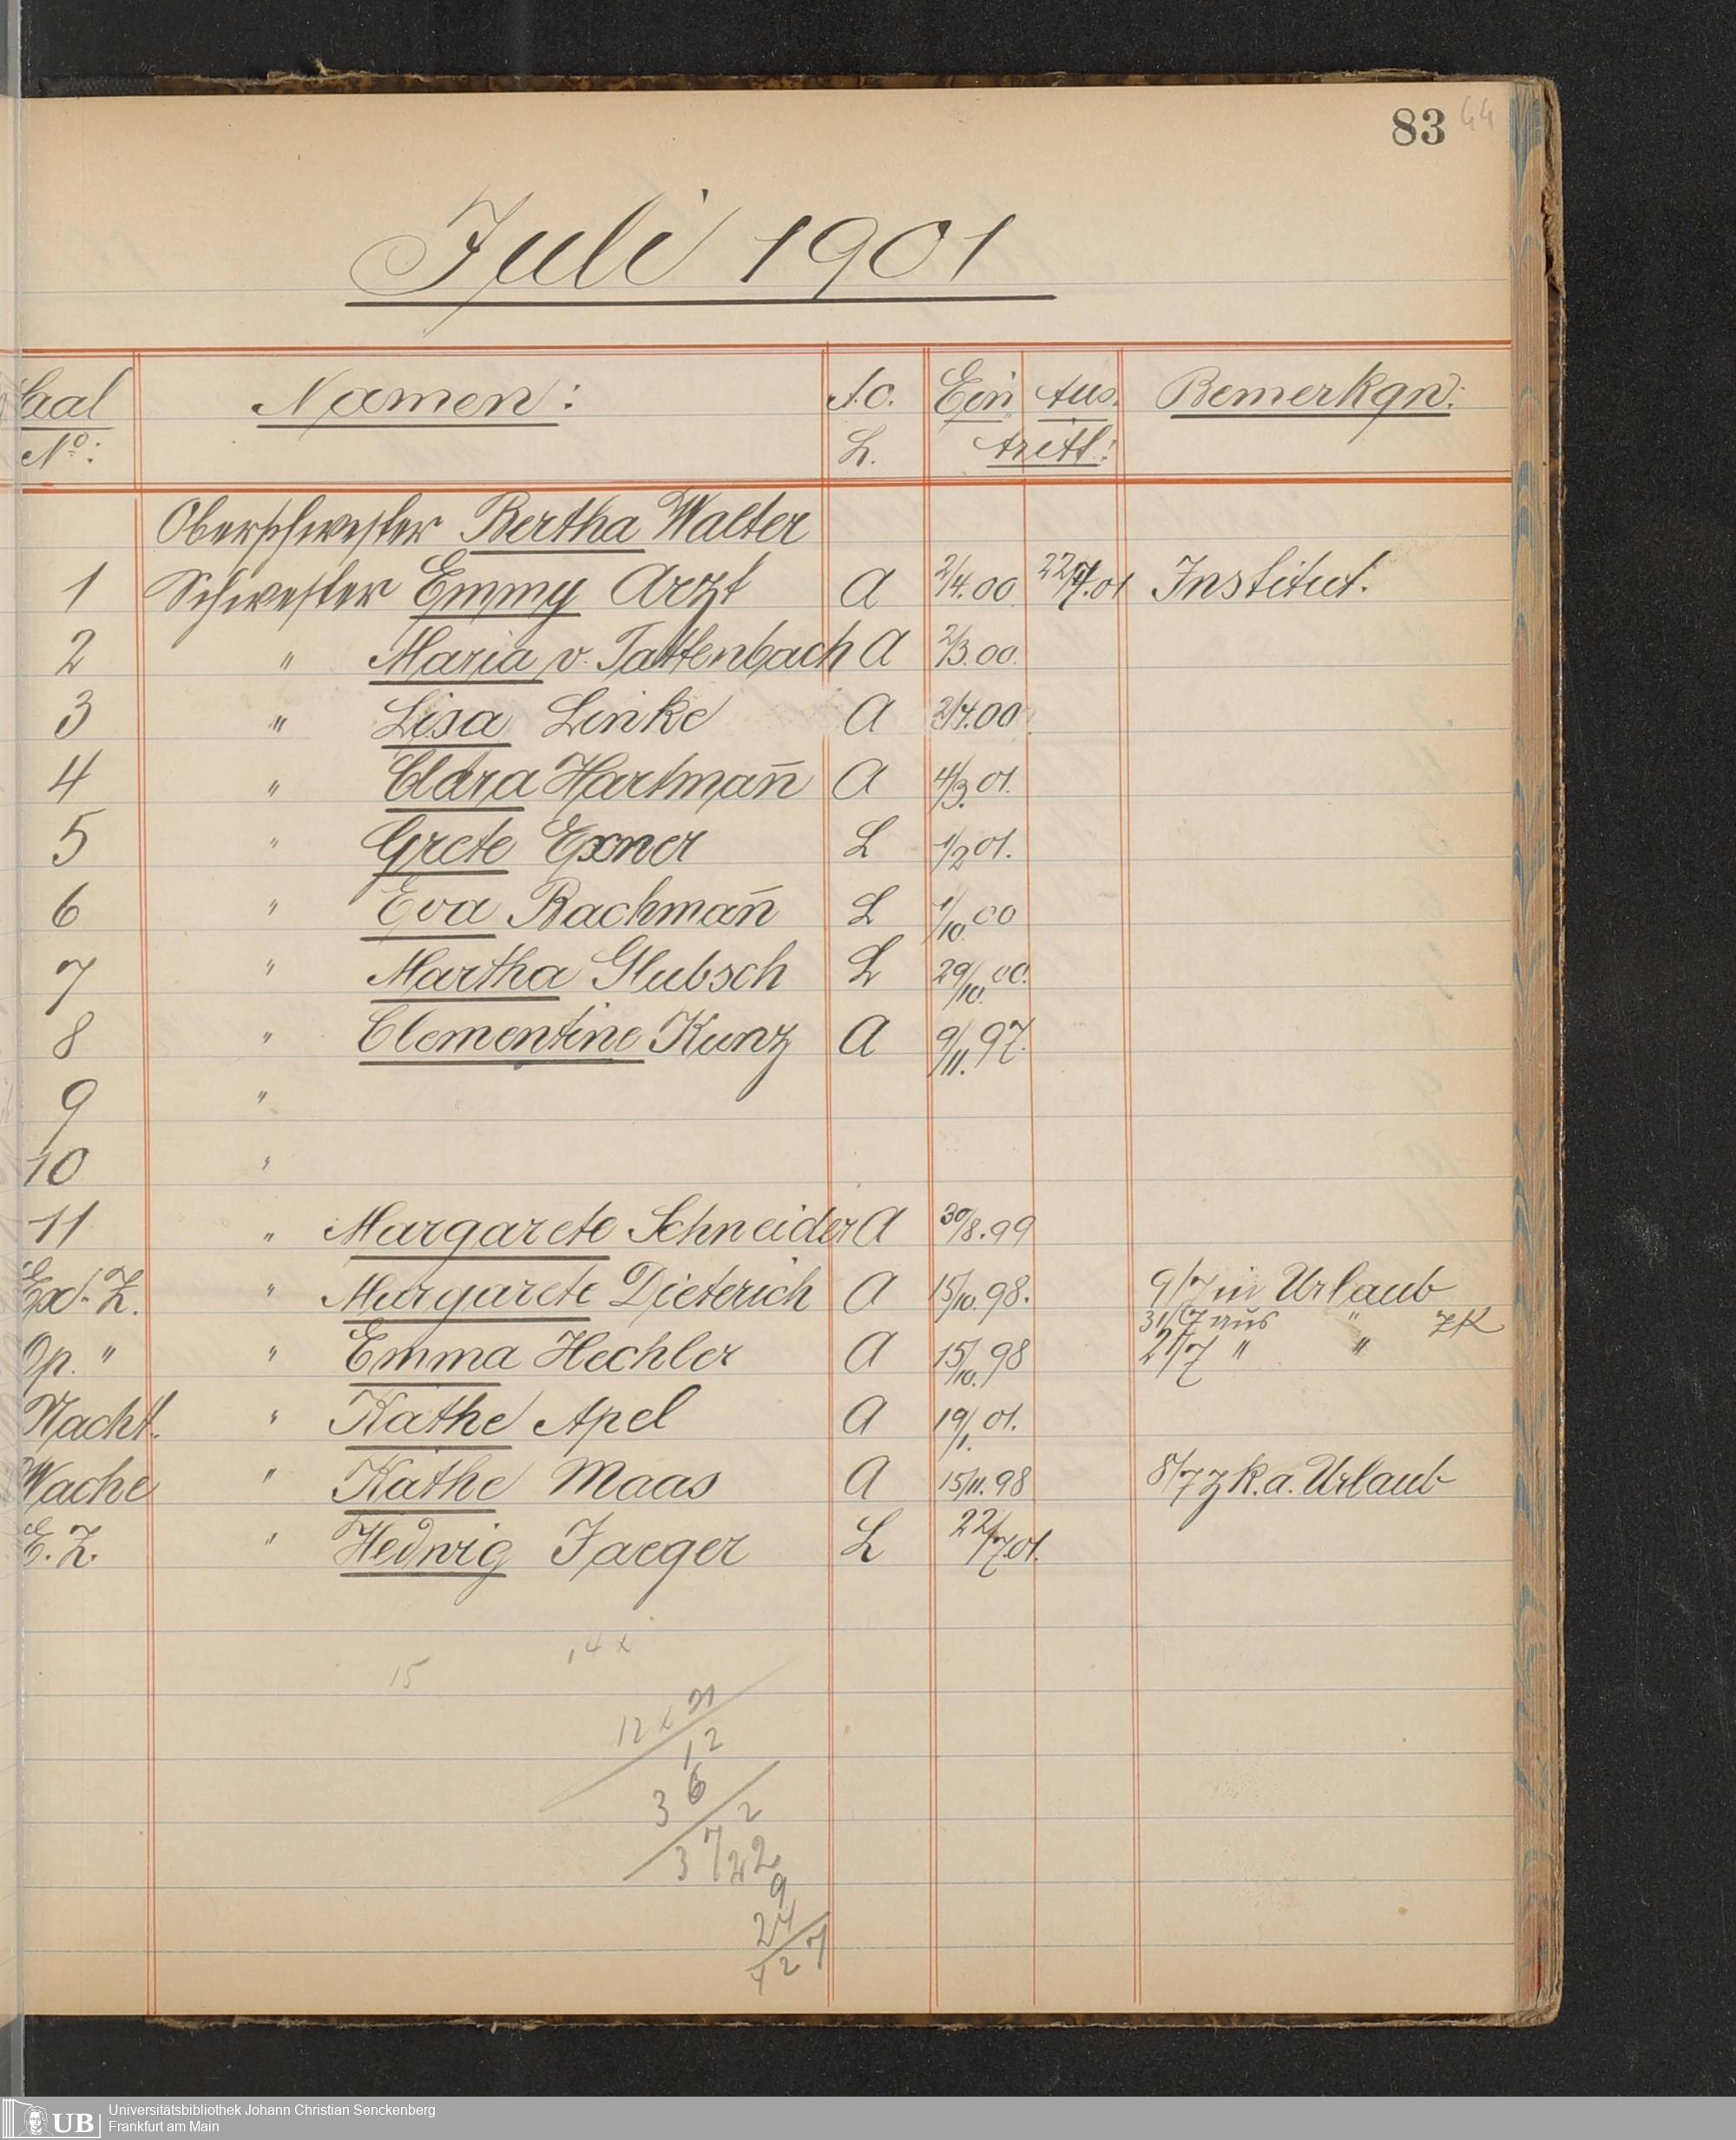 83 44
Juli 1901
Saal Namen: A.O. Ein Aus Bemerkgn:
No: L. tritt!
Oberschwester Bertha Walter
1 Schwester Emmy Arzt A 2/4.00 22/7.01 Institut.
2 " Maria v. Tattenbach A 2/3.00.
3 " Lisa Linke A 2/4.00
4 " Clara Hartman̄ A 4/3.01.
5 " Grete Exner L 1/2 01.
6 " Eva Bachman̄ L 1/10.00
7 " Martha Glubsch L 29/10.00.
8 " Clementine Kunz A 9/11.97.
9 "
10 "
11 " Margarete Schneider A 30/8.99
Ext. Z. " Margarete Dieterich A 15/10.98. 9/7 in Urlaub
31/7 aus " zk
Op. " " Emma Hechler A 15/10.98 21/7 " "
Nacht. " Käthe Apel A 19/1.01.
Wache " Käthe Maas A 15/11.98 8/7 zk. a. Urlaub
E. Z. " Hedwig Jaeger L 22/7.01.
14 x
15
12 x 31
12
36
2
3722
9
24
427
Universitätsbibliothek Johann Christian Senckenberg
UB
Frankfurt am Main